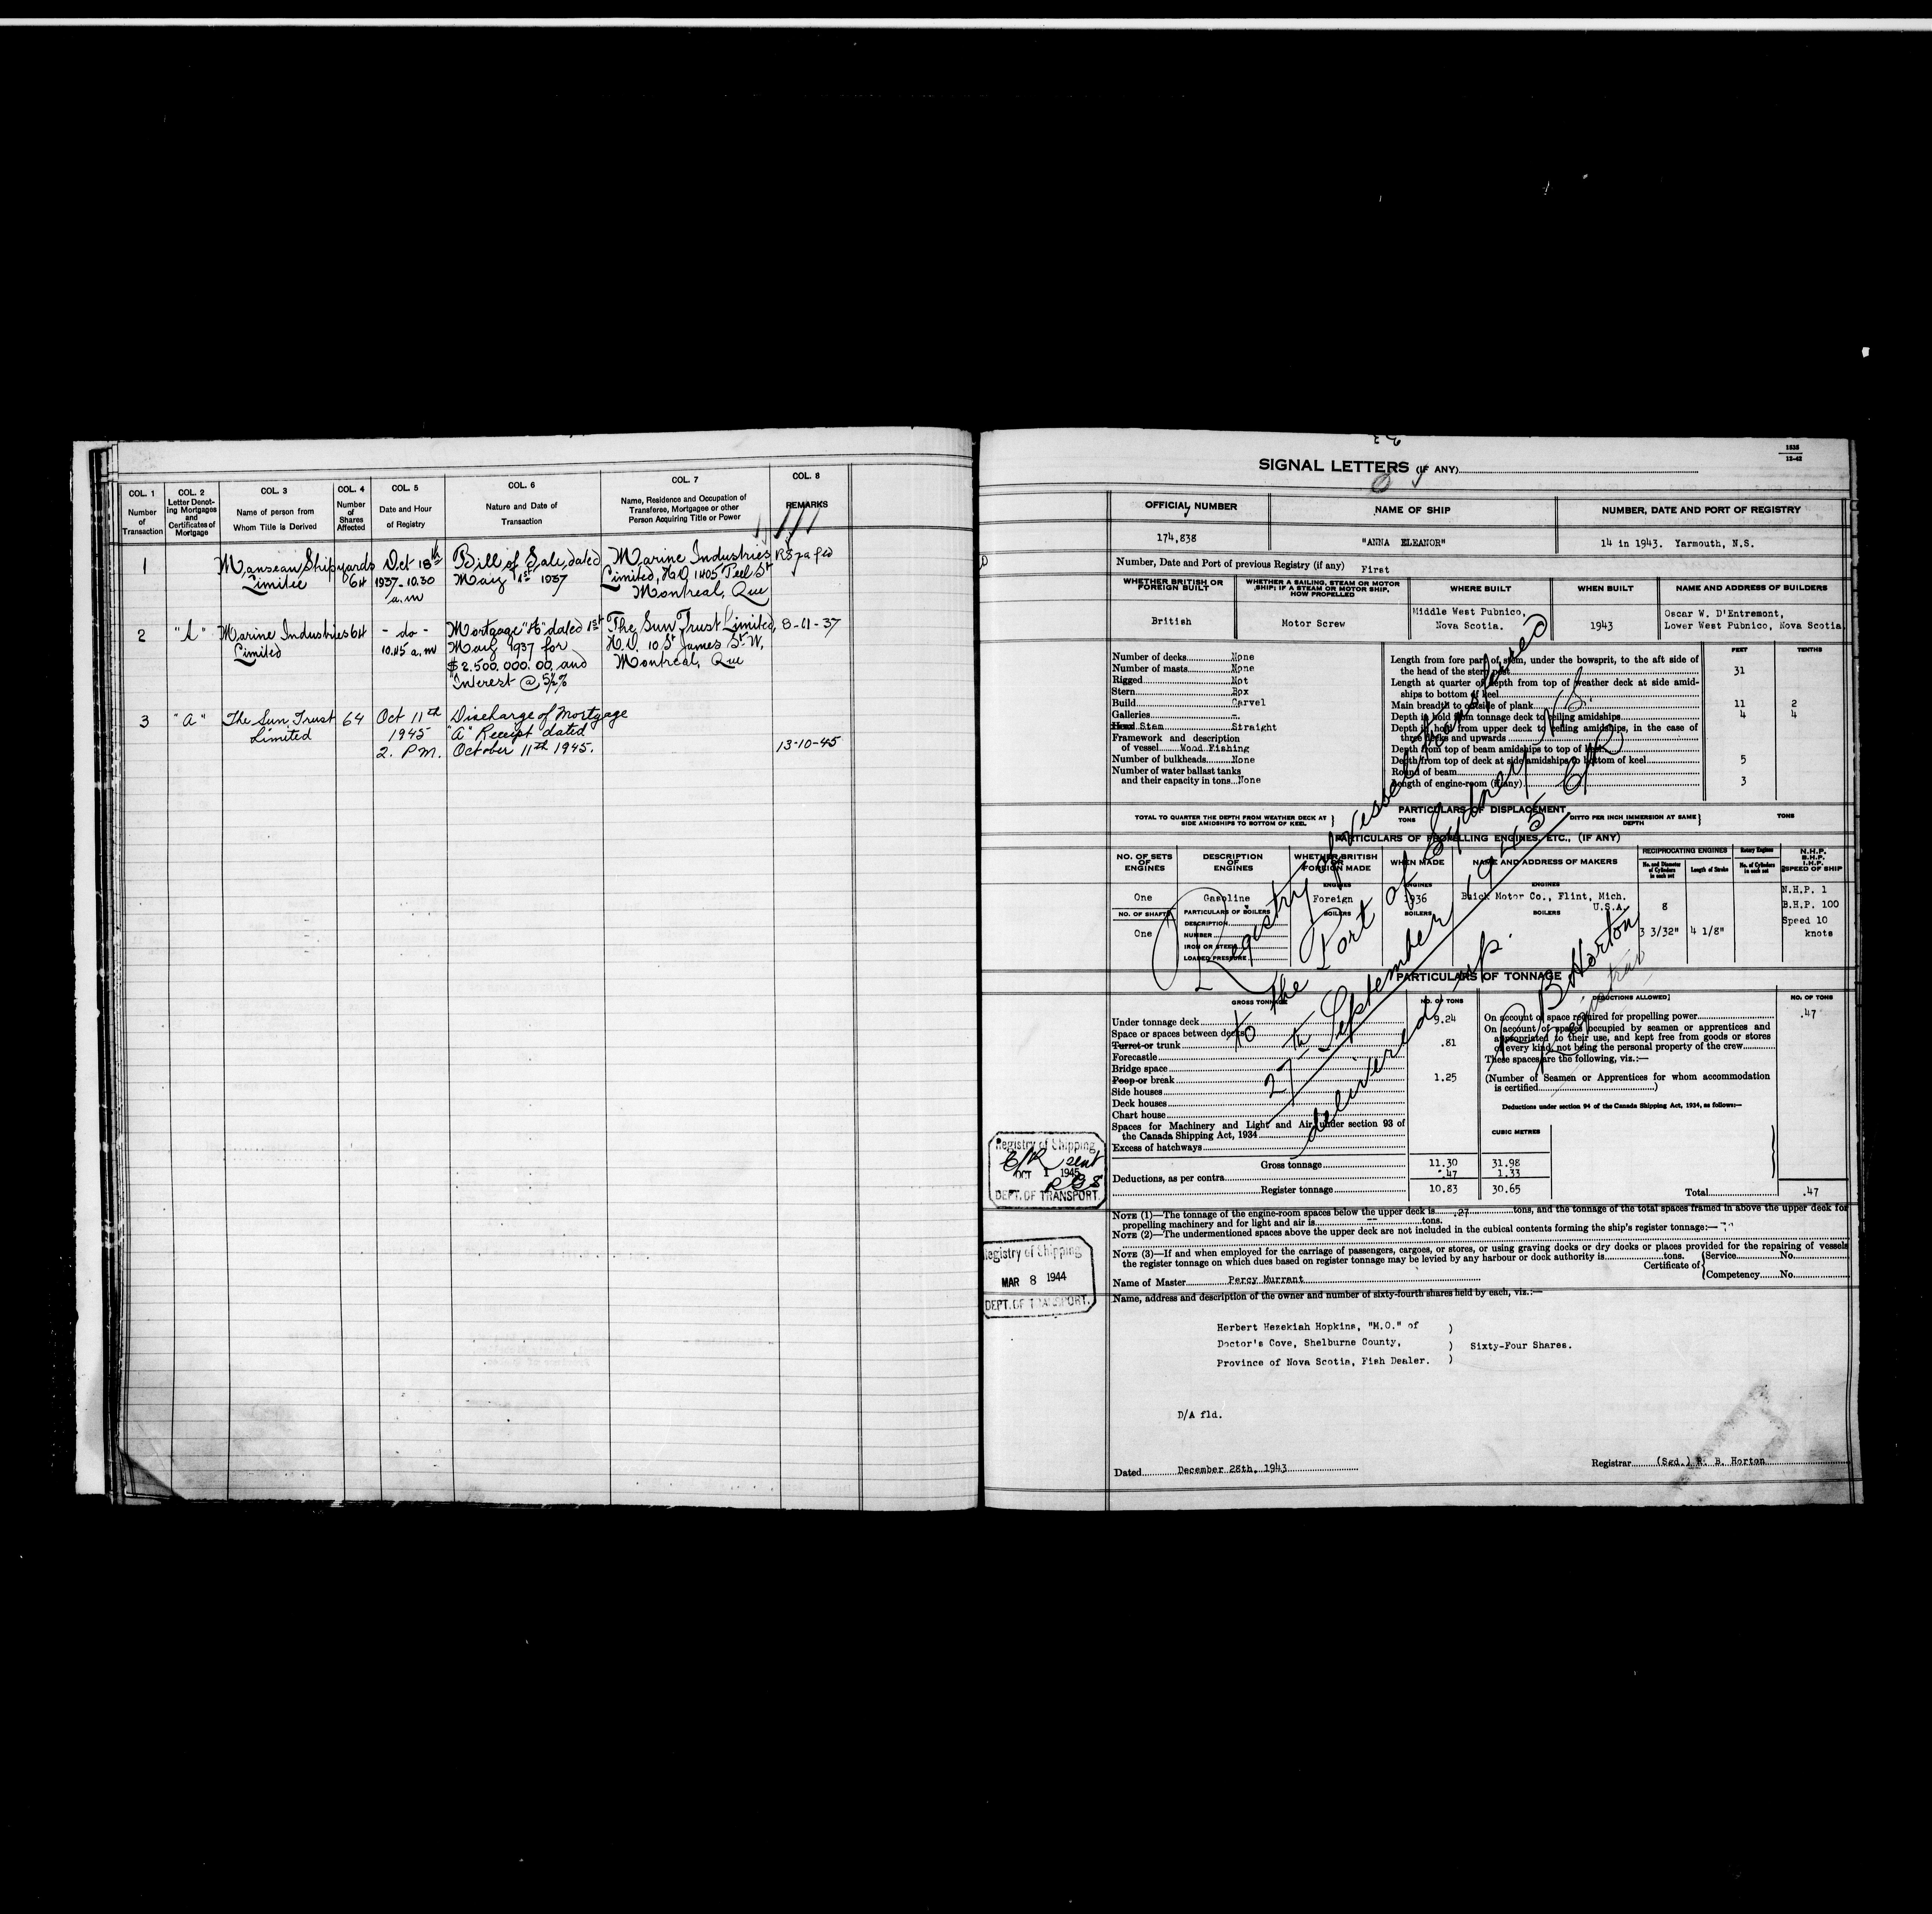 COL. 1
Number
of
Transaction
COL. 2
Letter Denot-
ing Mortgages
and
Certificates of
Mortgage
COL. 3
Name of person from
Whom Title is Derived
COL. 4
Number
of
Shares
Affected
COL. 5
Date and Hour
of Registry
COL. 6
Nature and Date of
Transaction
COL. 7
Name, Residence and Occupation of
Transferee, Mortgagee or other
Person Acquiring Title or Power
COL. 8
REMARKS
1
Manseau Shipyards
Limitée
64
Oct 18th
1937-10.30
a.m
Bill of Sale, dated
1st 1937
Marine Industries
Limited, H.O. 1405 Peel St
Montreal, Que
2
"A"
Marine Industries
Limited
64
- do -
10.45 a.m
Mortgage "A" dated 1st
1937 for
$2.500.000.00 and
Interest @ 5½%
The Sun Trust Limited,
H.O. 10 St James St. W,
Montreal, Que
8-11-37
3
"A"
The Sun Trust
Limited
64
Oct 11th
1945
2. P.M.
Discharge of Mortgage
"A" Receipt dated
October 11th 1945.
13-10-45
1835
12-42
SIGNAL LETTERS (IF ANY)
OFFICIAL NUMBER
NAME OF SHIP
NUMBER, DATE AND PORT OF REGISTRY
174,838
"ANNA ELEANOR"
14 in 1943. Yarmouth, N.S.
Number, Date and Port of previous Registry (if any) First
WHETHER BRITISH OR
FOREIGN BUILT
WHETHER A SAILING, STEAM OR MOTOR
SHIP; IF A STEAM OR MOTOR SHIP,
HOW PROPELLED
WHERE BUILT
WHEN BUILT
NAME AND ADDRESS OF BUILDERS
British
Motor Screw
Middle West Pubnico,
Nova Scotia.
1943
Oscar W. D'Entremont,
Lower West Pubnico, Nova Scotia.
Number of decks None
Number of masts None
Rigged Not
Stern Box
Build Carvel
Galleries -
Head Stem Straight
Framework and description
of vessel Wood Fishing
Number of bulkheads None
Number of water ballast tanks
and their capacity in tons None
FEET
TENTHS
Length from fore part of stem, under the bowsprit, to the aft side of
the head of the stern post 31
Length at quarter of depth from top of weather deck at side amid-
ships to bottom of keel
Main breadth to outside of plank 11 2
Depth in hold from tonnage deck to ceiling amidships 4 4
Depth in hold from upper deck to ceiling amidships, in the case of
three decks and upwards
Depth from top of beam amidships to top of keel
Depth from top of deck at side amidships to bottom of keel 5
Round of beam
Length of engine-room (if any) 3
PARTICULARS OF DISPLACEMENT
TOTAL TO QUARTER THE DEPTH FROM WEATHER DECK AT
SIDE AMIDSHIPS TO BOTTOM OF KEEL.
TONS
DITTO PER INCH IMMERSION AT SAME
DEPTH
TONS
PARTICULARS OF PROPELLING ENGINES, ETC., (IF ANY)
NO. OF SETS
OF
ENGINES
DESCRIPTION
OF
ENGINES
WHETHER BRITISH
OR
FOREIGN MADE
WHEN MADE
NAME AND ADDRESS OF MAKERS
RECIPROCATING ENGINES
No. and Diameter
of Cylinders
in each set
Length of Stroke
Rotary Engines
No. of Cylinders
in each set
N.H.P.
B.H.P.
I.H.P.
SPEED OF SHIP
ENGINES
ENGINES
ENGINES
One
Gasoline
Foreign
1936
Buick Motor Co., Flint, Mich.
U.S.A.
8
3 3/32"
4 1/8"
N.H.P. 1
B.H.P. 100
Speed 10
knots
NO. OF SHAFTS
One
PARTICULARS OF BOILERS
DESCRIPTION
NUMBER
IRON OR STEEL
LOADED PRESSURE
BOILERS
BOILERS
BOILERS
PARTICULARS OF TONNAGE
GROSS TONNAGE
NO. OF TONS
Under tonnage deck 9.24
Space or spaces between decks
Turret or trunk .81
Forecastle
Bridge space
Poop or break 1.25
Side houses
Deck houses
Chart house
Spaces for Machinery and Light and Air, under section 93 of
the Canada Shipping Act, 1934
Excess of hatchways
Gross tonnage 11.30 31.98
Deductions, as per contra .47 1.33
Register tonnage 10.83 30.65
DEDUCTIONS ALLOWED
NO. OF TONS
On account of space required for propelling power .47
On account of spaces occupied by seamen or apprentices and
appropriated to their use, and kept free from goods or stores
of every kind, not being the personal property of the crew
These spaces are the following, viz.:—
(Number of Seamen or Apprentices for whom accommodation
is certified )
Deductions under section 94 of the Canada Shipping Act, 1934, as follows:—
CUBIC METRES
Total .47
Registry of Vessel transferred
to the Port of Sydney N.S.
27th September 1945 C/R
delivered up.
R B Horton
Registrar
Registry of Shipping
C/R sent
OCT 1 1945
DEPT. OF TRANSPORT.
NOTE (1)—The tonnage of the engine-room spaces below the upper deck is .27 tons, and the tonnage of the total spaces framed in above the upper deck for
propelling machinery and for light and air is -- tons.
NOTE (2)—The undermentioned spaces above the upper deck are not included in the cubical contents forming the ship's register tonnage:—
NOTE (3)—If and when employed for the carriage of passengers, cargoes, or stores, or using graving docks or dry docks or places provided for the repairing of vessels
the register tonnage on which dues based on register tonnage may be levied by any harbour or dock authority is tons.
Certificate of
Service No.
Competency No.
Registry of Shipping
MAR 8 1944
DEPT. OF TRANSPORT.
Name of Master Percy Murrant
Name, address and description of the owner and number of sixty-fourth shares held by each, viz.:—
Herbert Hezekiah Hopkins, "M.O." of )
Doctor's Cove, Shelburne County, ) Sixty-Four Shares.
Province of Nova Scotia, Fish Dealer. )
D/A fld.
Dated December 28th, 1943
Registrar (Sgd.) R. B. Horton